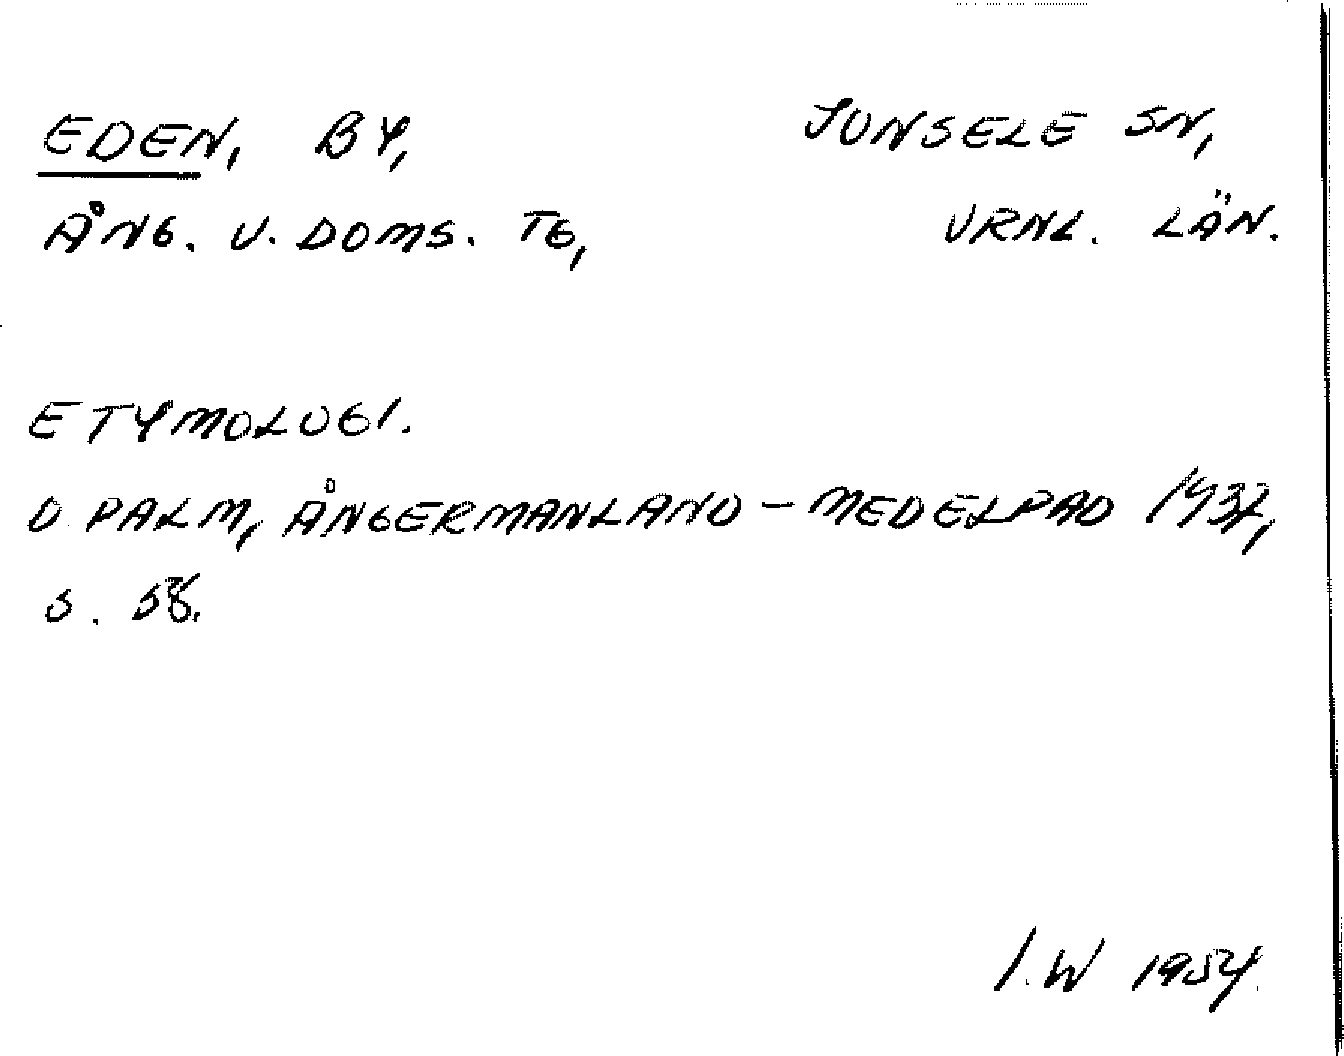 EDEN, BY, JUNSELE SN,
ÅNG. V. DOMS. TG, VRNL. LÄN.
ETYMOLOGI.
D PALM, ÅNGERMANLAND - MEDELPAD 1937,
S. 58.
I.W 1954.